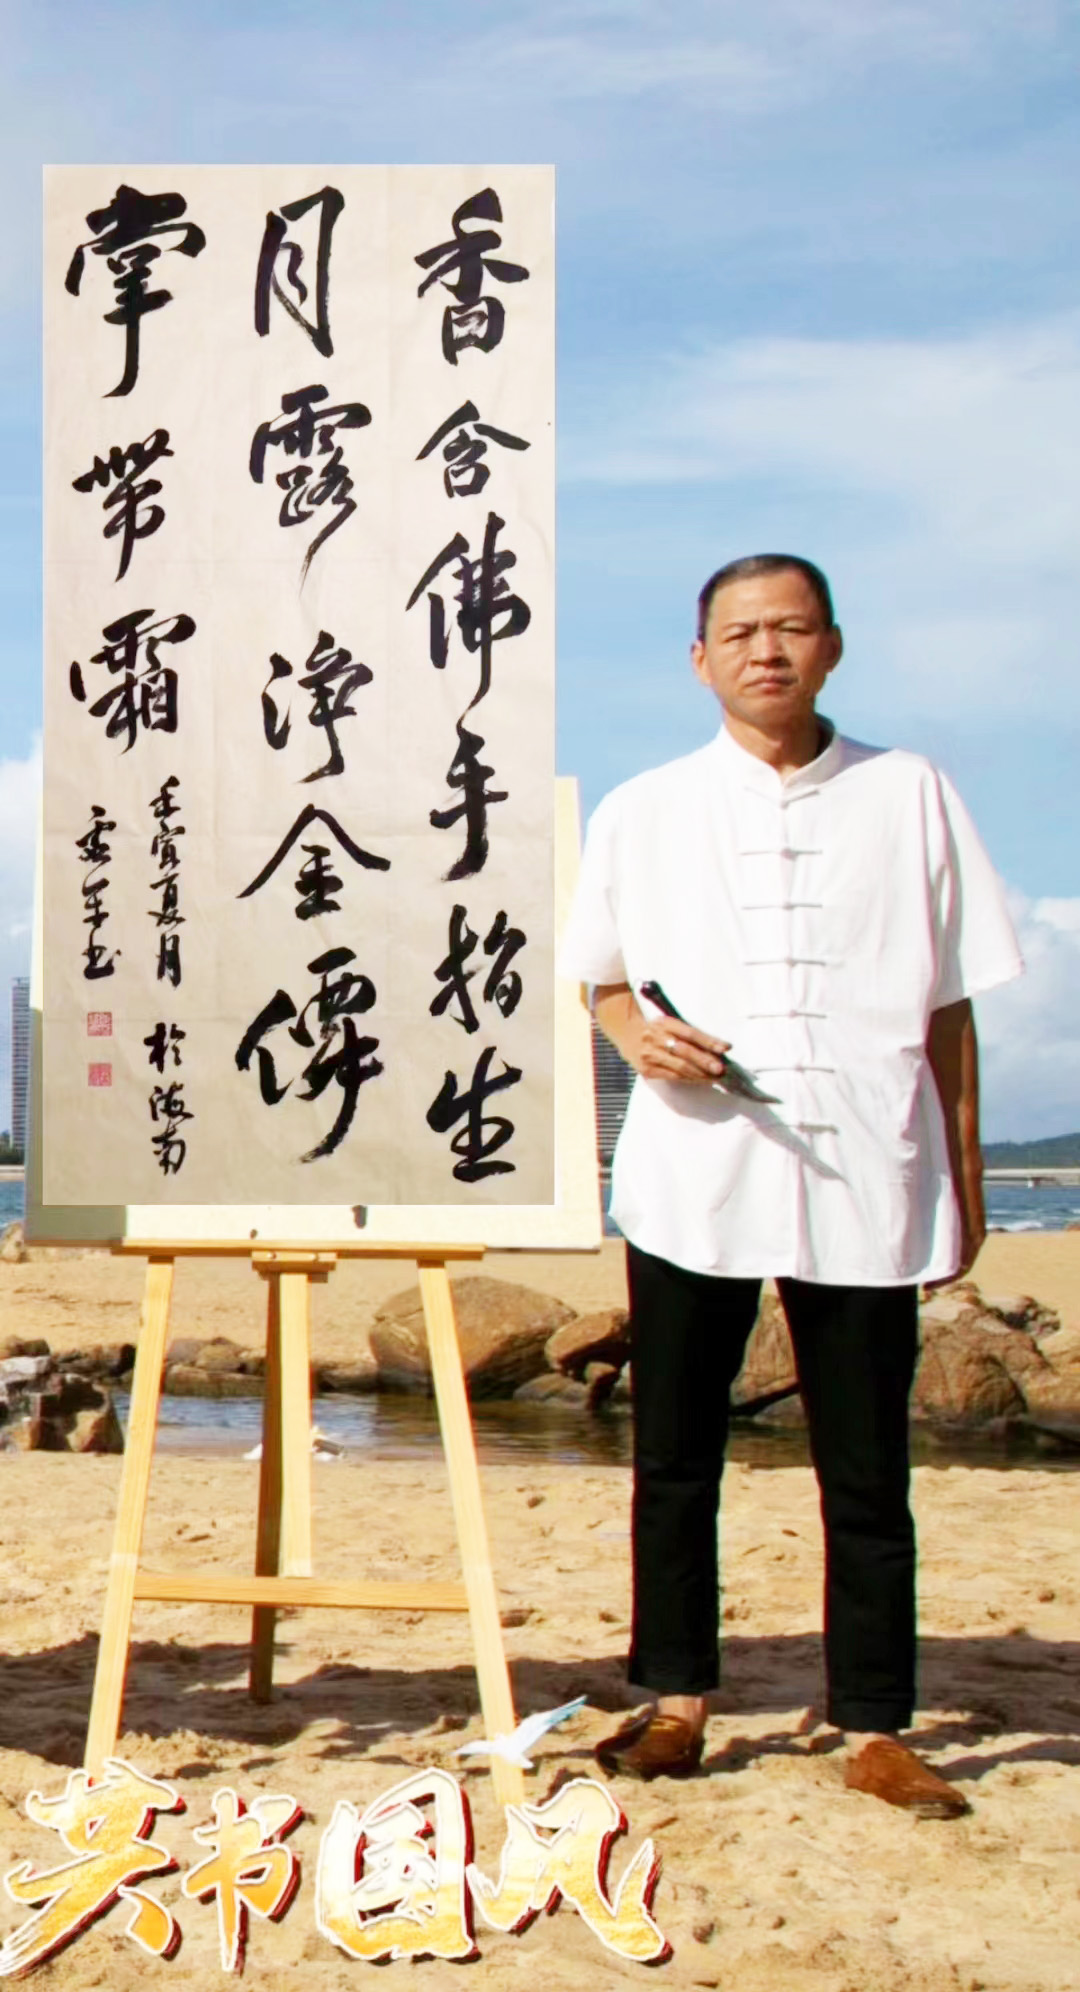 香含佛手指生
月露净金僊
掌带霜
壬寅夏月 於海南
共书国风